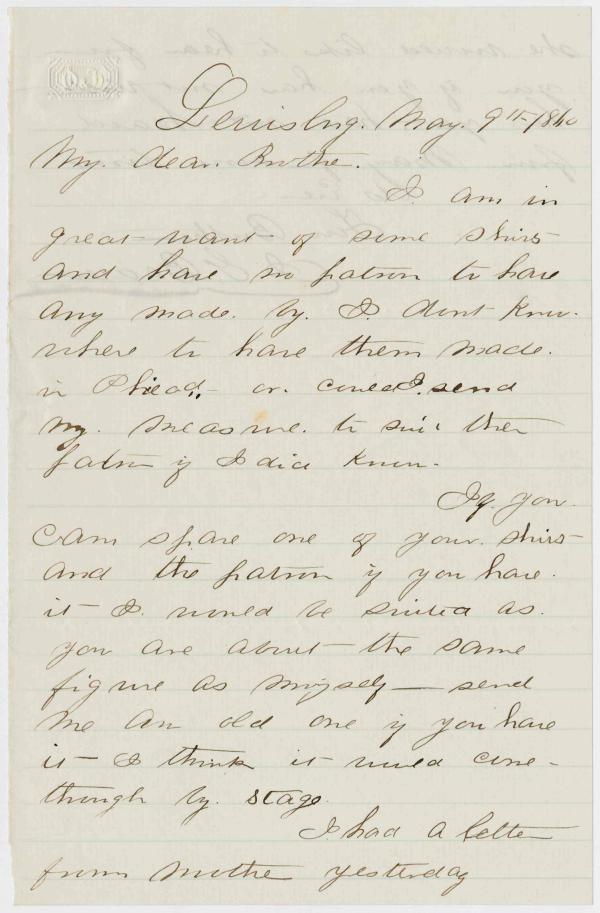 Lewisbg. May. 9th 1860
My. dear. Brother.
I. am in
great want of some shirts
and have no patron to have
any made. by. I. dont know.
where to have them made.
in Philad. or. could I. send
my. measure. to suit them
patron if I did know.
If. you.
can spare one of your. shirts
and the patron if you have.
it I. would be suited as.
you are about the same
figure as myself — send
me an old one if you have
it I think it would come
through by. stage.
I had a letter
from mother yesterday